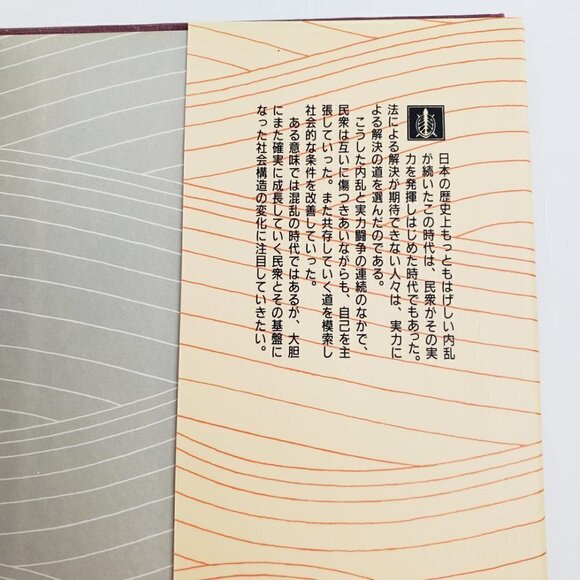 日本の歴史上もっともはげしい内乱
が続いたこの時代は、民衆がその実
力を発揮しはじめた時代でもあった。
法による解決が期待できない人々は、実力に
よる解決の道を選んだのである。
こうした内乱と実力闘争の連続のなかで、
民衆は互いに傷つきあいながらも、自己を主
張していった。また共存していく道を模索し
社会的な条件を改善していった。
ある意味では混乱の時代ではあるが、大胆
にまた確実に成長していく民衆とその基盤に
なった社会構造の変化に注目していきたい。